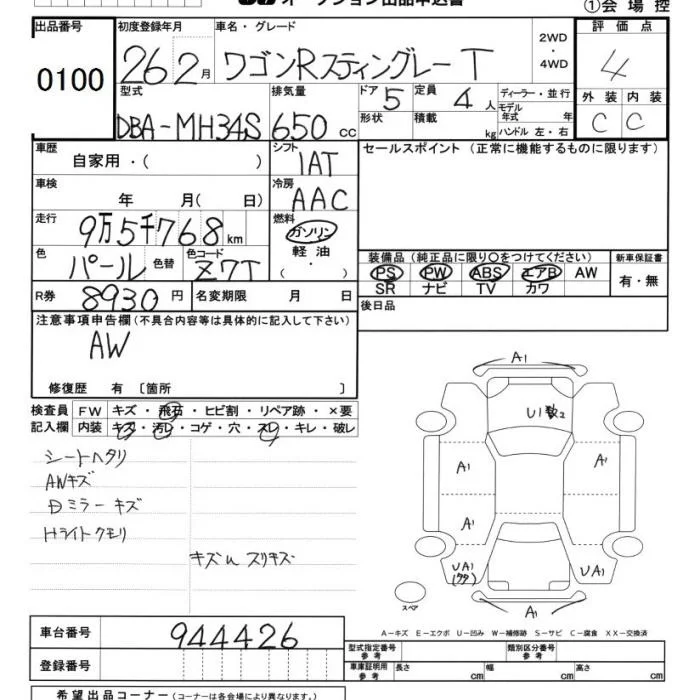 オークション出品申込書
①会場控
出品番号 0100
初度登録年月 26 2月
車名・グレード ワゴンRスティングレー T
2WD・4WD
評価点 4
外装 内装
C C
型式 DBA-MH34S
排気量 650 cc
ドア 5
形状
定員 4人
積載 kg
ディーラー・並行
モデル年式 年
ハンドル 左・右
車歴 自家用・( )
シフト 1AT
セールスポイント (正常に機能するものに限ります)
車検 年 月( 日)
冷房 AAC
走行 9万5千768km
燃料 ガソリン・軽油・( )
色 パール 色替
色コード Z7T
装備品 (純正品に限り〇をつけてください)
PS PW ABS エアB AW
SR ナビ TV カワ
新車保証書
有・無
R券 8930円
名変期限 月 日
後日品
注意事項申告欄(不具合内容等は具体的に記入して下さい)
AW
修復歴 有 [箇所 ]
検査員記入欄
FW キズ・飛石・ヒビ割・リペア跡・×要
内装 キズ・汚レ・コゲ・穴・スレ・キレ・破レ
シートヘタリ
AWキズ
Dミラーキズ
Hライトクモリ
キズ スリキズ
A1
U1数2
A1
A1
A1
UA1
UA1
A1
スペア
A-キズ E-エクボ U-凹み W-補修跡 S-サビ C-腐食 XX-交換済
車台番号 944426
登録番号
型式指定番号 参考
類別区分番号 参考
車庫証明用 参考
長さ cm
幅 cm
高さ cm
希望出品コーナー (コーナーは各会場により異なります。)